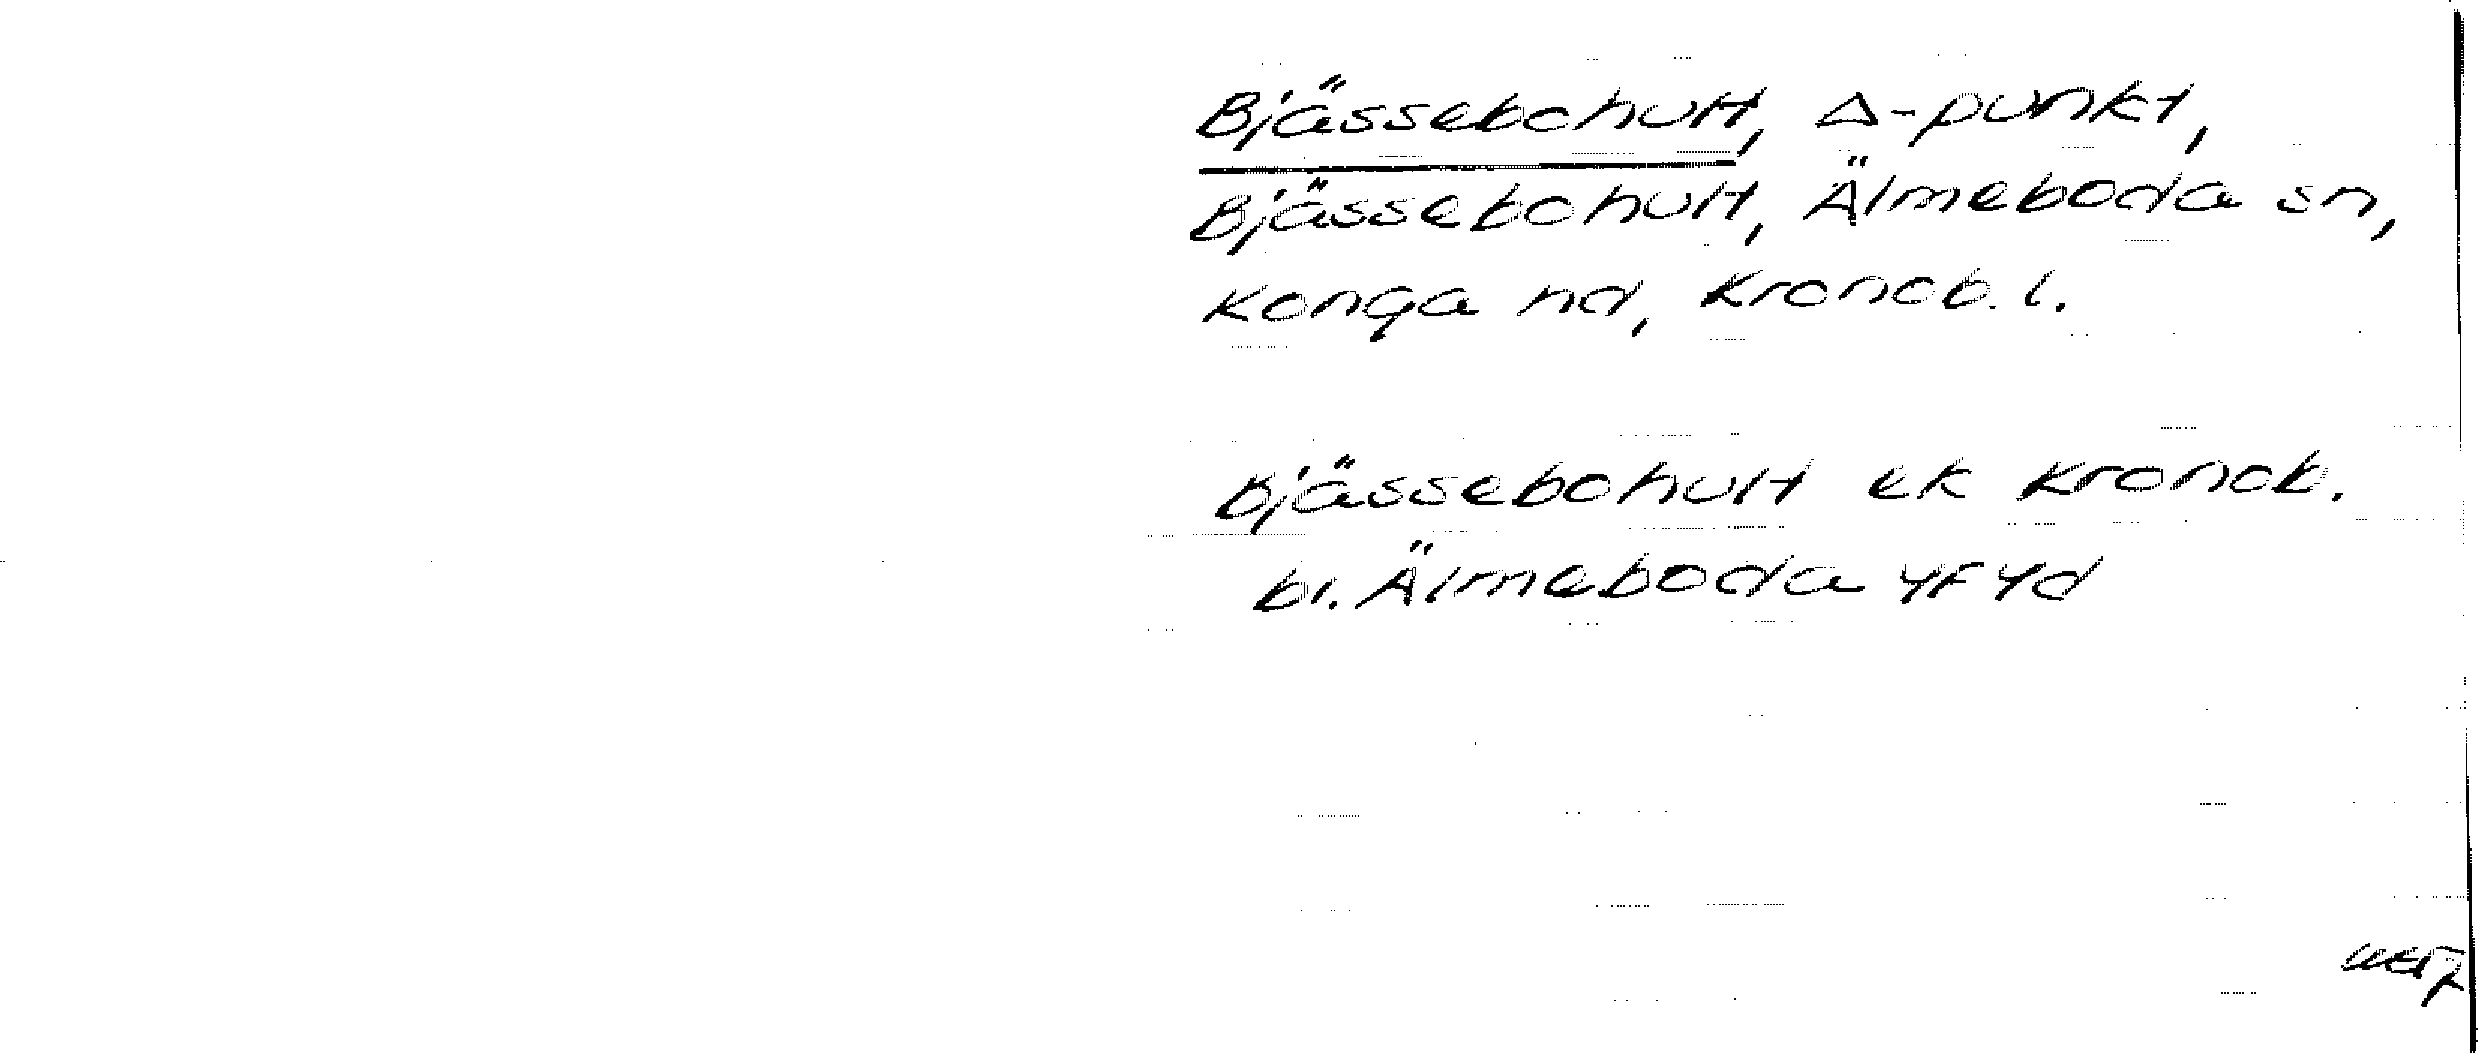 Bjässebohult, Δ-punkt,
Bjässebohult, Älmeboda sn,
Konga hd, Kronob. l.
Bjässebohult ek Kronob.
bl. Älmeboda 4F4d